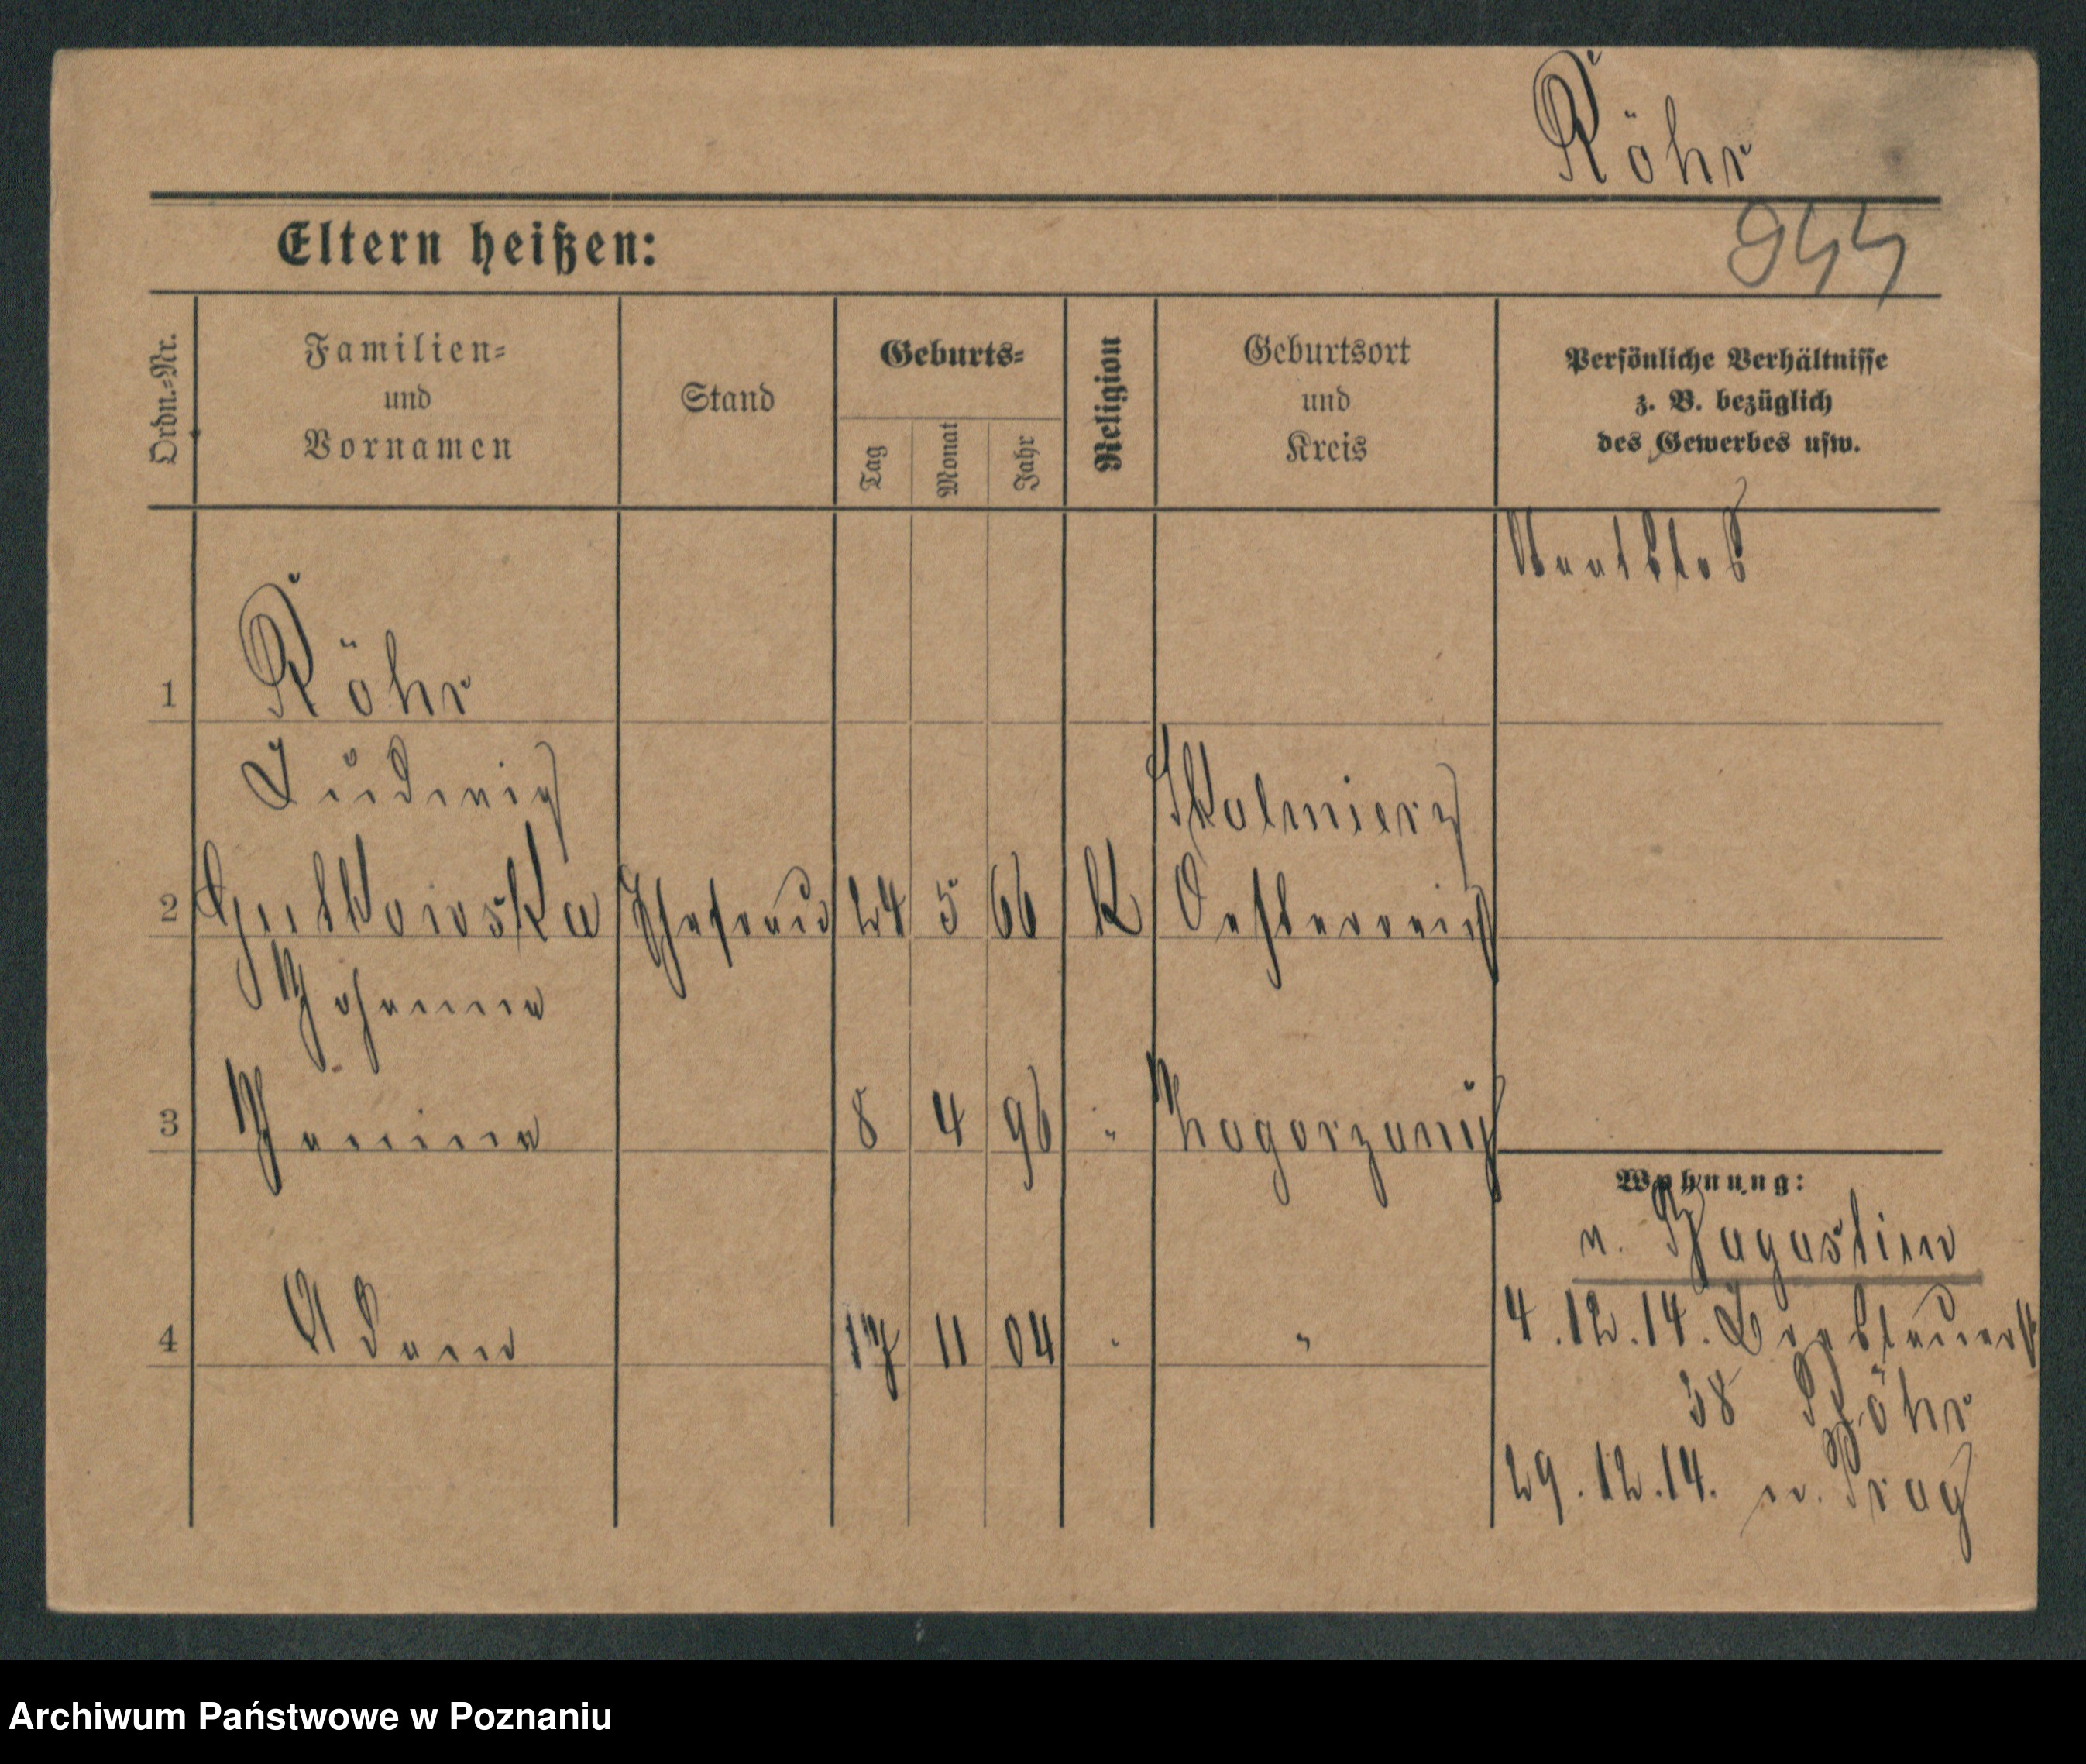 Röhr
Eltern heißen:
944
Ordn.=Nr.
Familien=
und
Vornamen
Stand
Geburts=
Tag
Monat
Jahr
Religion
Geburtsort
und
Kreis
Persönliche Verhältnisse
z. B. bezüglich
des Gewerbes usw.
1 Röhr
Ludwig
2 Gutkowska Ehefrau 24 5 66 K Skolmierz
Oesterreich
Johanna
3 Janina 8 4 96 " Zagorzany
4 Adam 17 11 04 " "
Wohnung:
n. Augustin
4.12.14.
38 Röhr
29.12.14. n. Prag
Archiwum Państwowe w Poznaniu